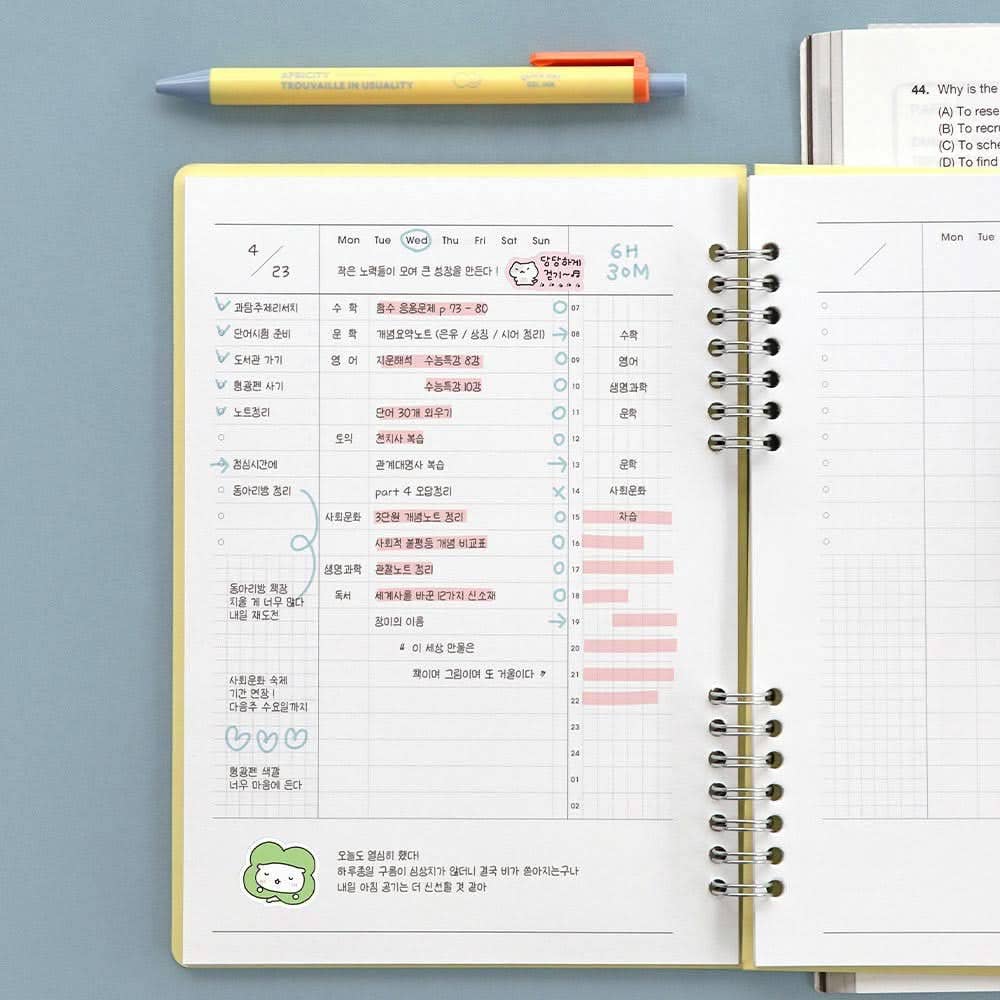 APRICITY
TROUVAILLE IN USUALITY
44. Why is the
(A) To rese
(B) To recru
(C) To sche
(D) To find
4 / 23
Mon Tue Wed Thu Fri Sat Sun
작은 노력들이 모여 큰 성장을 만든다!
당당하게
걷기~♬
6H
30M
과탐주제리서치 수 학 함수 응용문제 p 73 - 80 07
단어시험 준비 문 학 개념요약노트 (은유 / 상징 / 시어 정리) 08 수학
도서관 가기 영 어 지문해석 수능특강 8강 09 영어
형광펜 사기 수능특강 10강 10 생명과학
노트정리 단어 30개 외우기 11 문학
토익 천지사 복습 12
점심시간에 관계대명사 복습 13 문학
동아리방 정리 part 4 오답정리 14 사회문화
사회문화 3단원 개념노트 정리 15 자습
사회적 불평등 개념 비교표 16
생명과학 관찰노트 정리 17
독서 세계사를 바꾼 12가지 신소재 18
장미의 이름 19
" 이 세상 만물은 20
책이며 그림이며 또 거울이다 " 21
22
23
24
01
02
동아리방 책장
치울 게 너무 많다
내일 재도전
사회문화 숙제
기간 연장!
다음주 수요일까지
형광펜 색깔
너무 마음에 든다
오늘도 열심히 했다!
하루종일 구름이 심상치가 않더니 결국 비가 쏟아지는구나
내일 아침 공기는 더 신선할 것 같아
Mon Tue